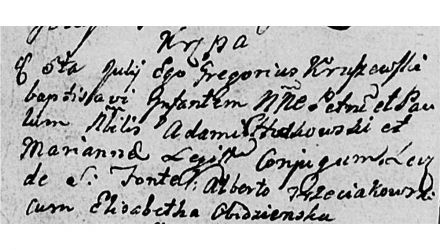 Krzpa
6 8ta Julij Ego Gregorius Kruszewski
baptisavi Infantem Nñe Petrũ et Pau
lum Nbilis Adami Chutkowski et
Marianne Legitte Conjugum. Lev
de S. Fonte: Alberto Trzeciakowski
cum Elisabetha Obidzienska